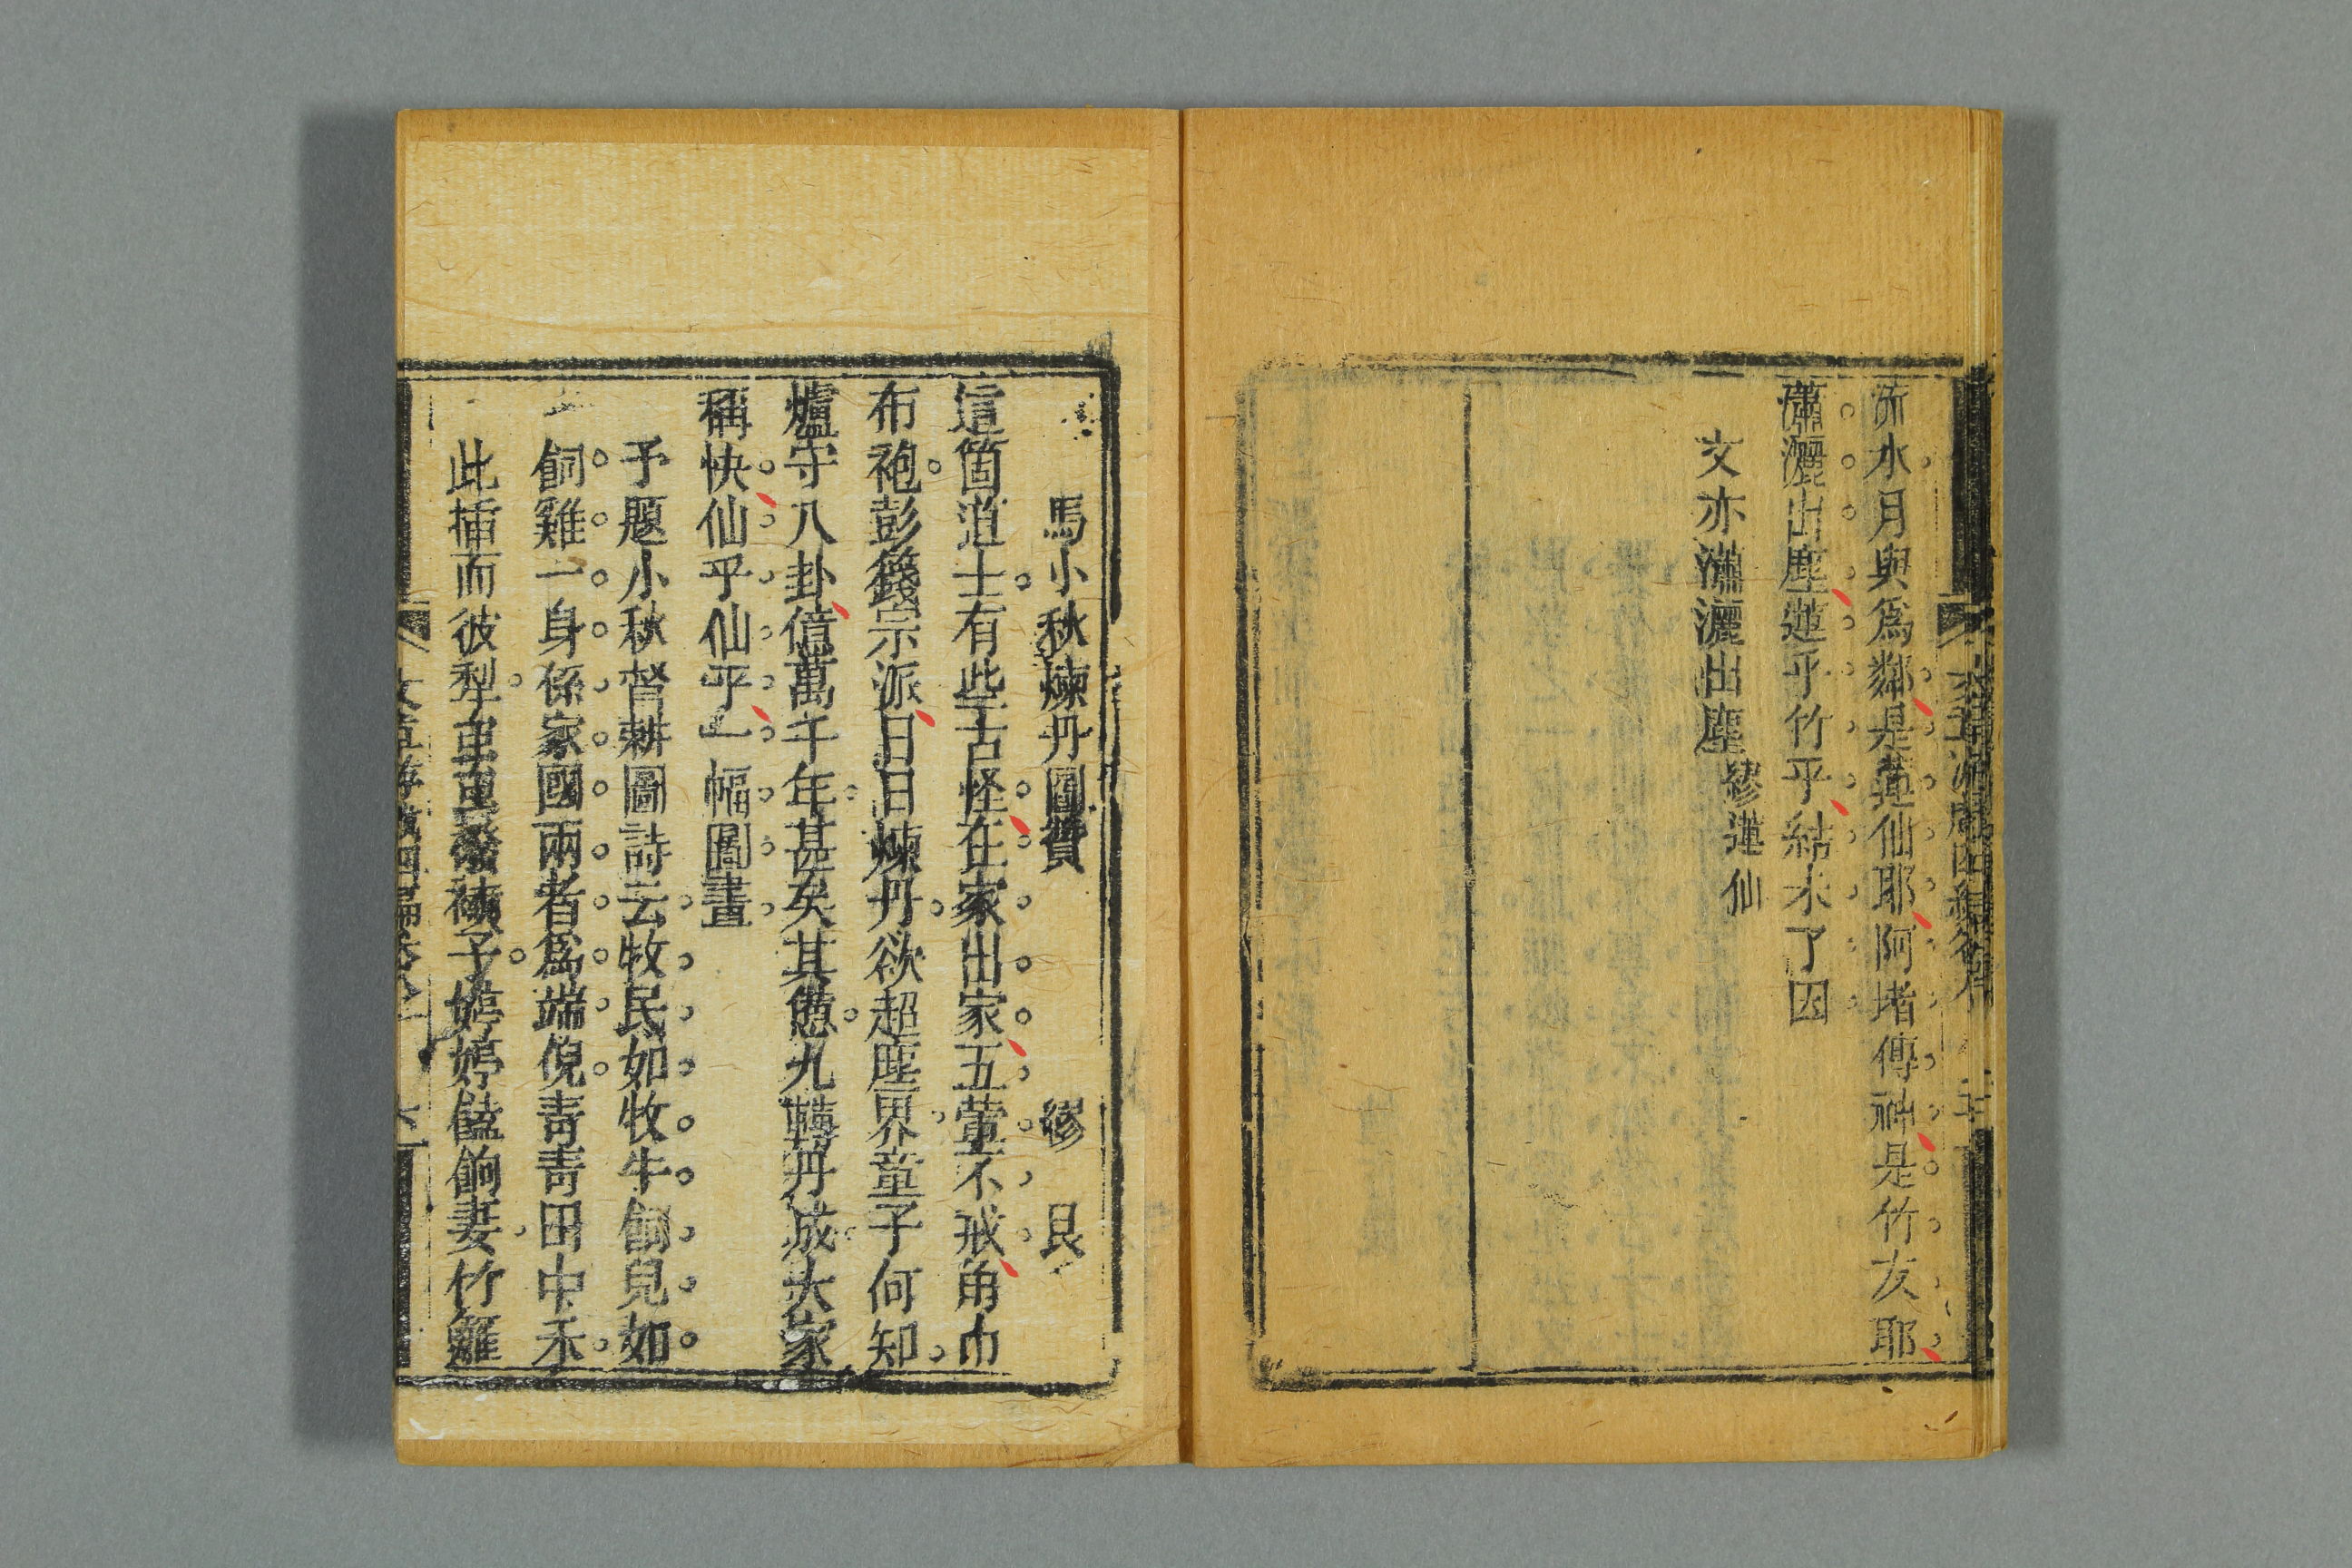 流水月與爲鄰是蓮仙耶阿堵傳神是竹友耶
瀟灑出塵蓮乎竹乎結水了因
文亦瀟灑出塵繆蓮仙
馬小秋煉丹圖贊 繆艮
這箇道士有些古怪在家出家五葷不戒角巾
布袍彭籛宗派日日煉丹欲超塵界童子何知
爐守八卦億萬千年甚矣其憊九轉丹成大家
稱快仙乎仙乎一幅圖畫
予題小秋督耕圖詩云牧民如牧牛飼兒如
飼雞一身係家國兩者爲端倪青青田中禾
此插而彼犁重重襏襫子婷婷饁餉妻竹雞